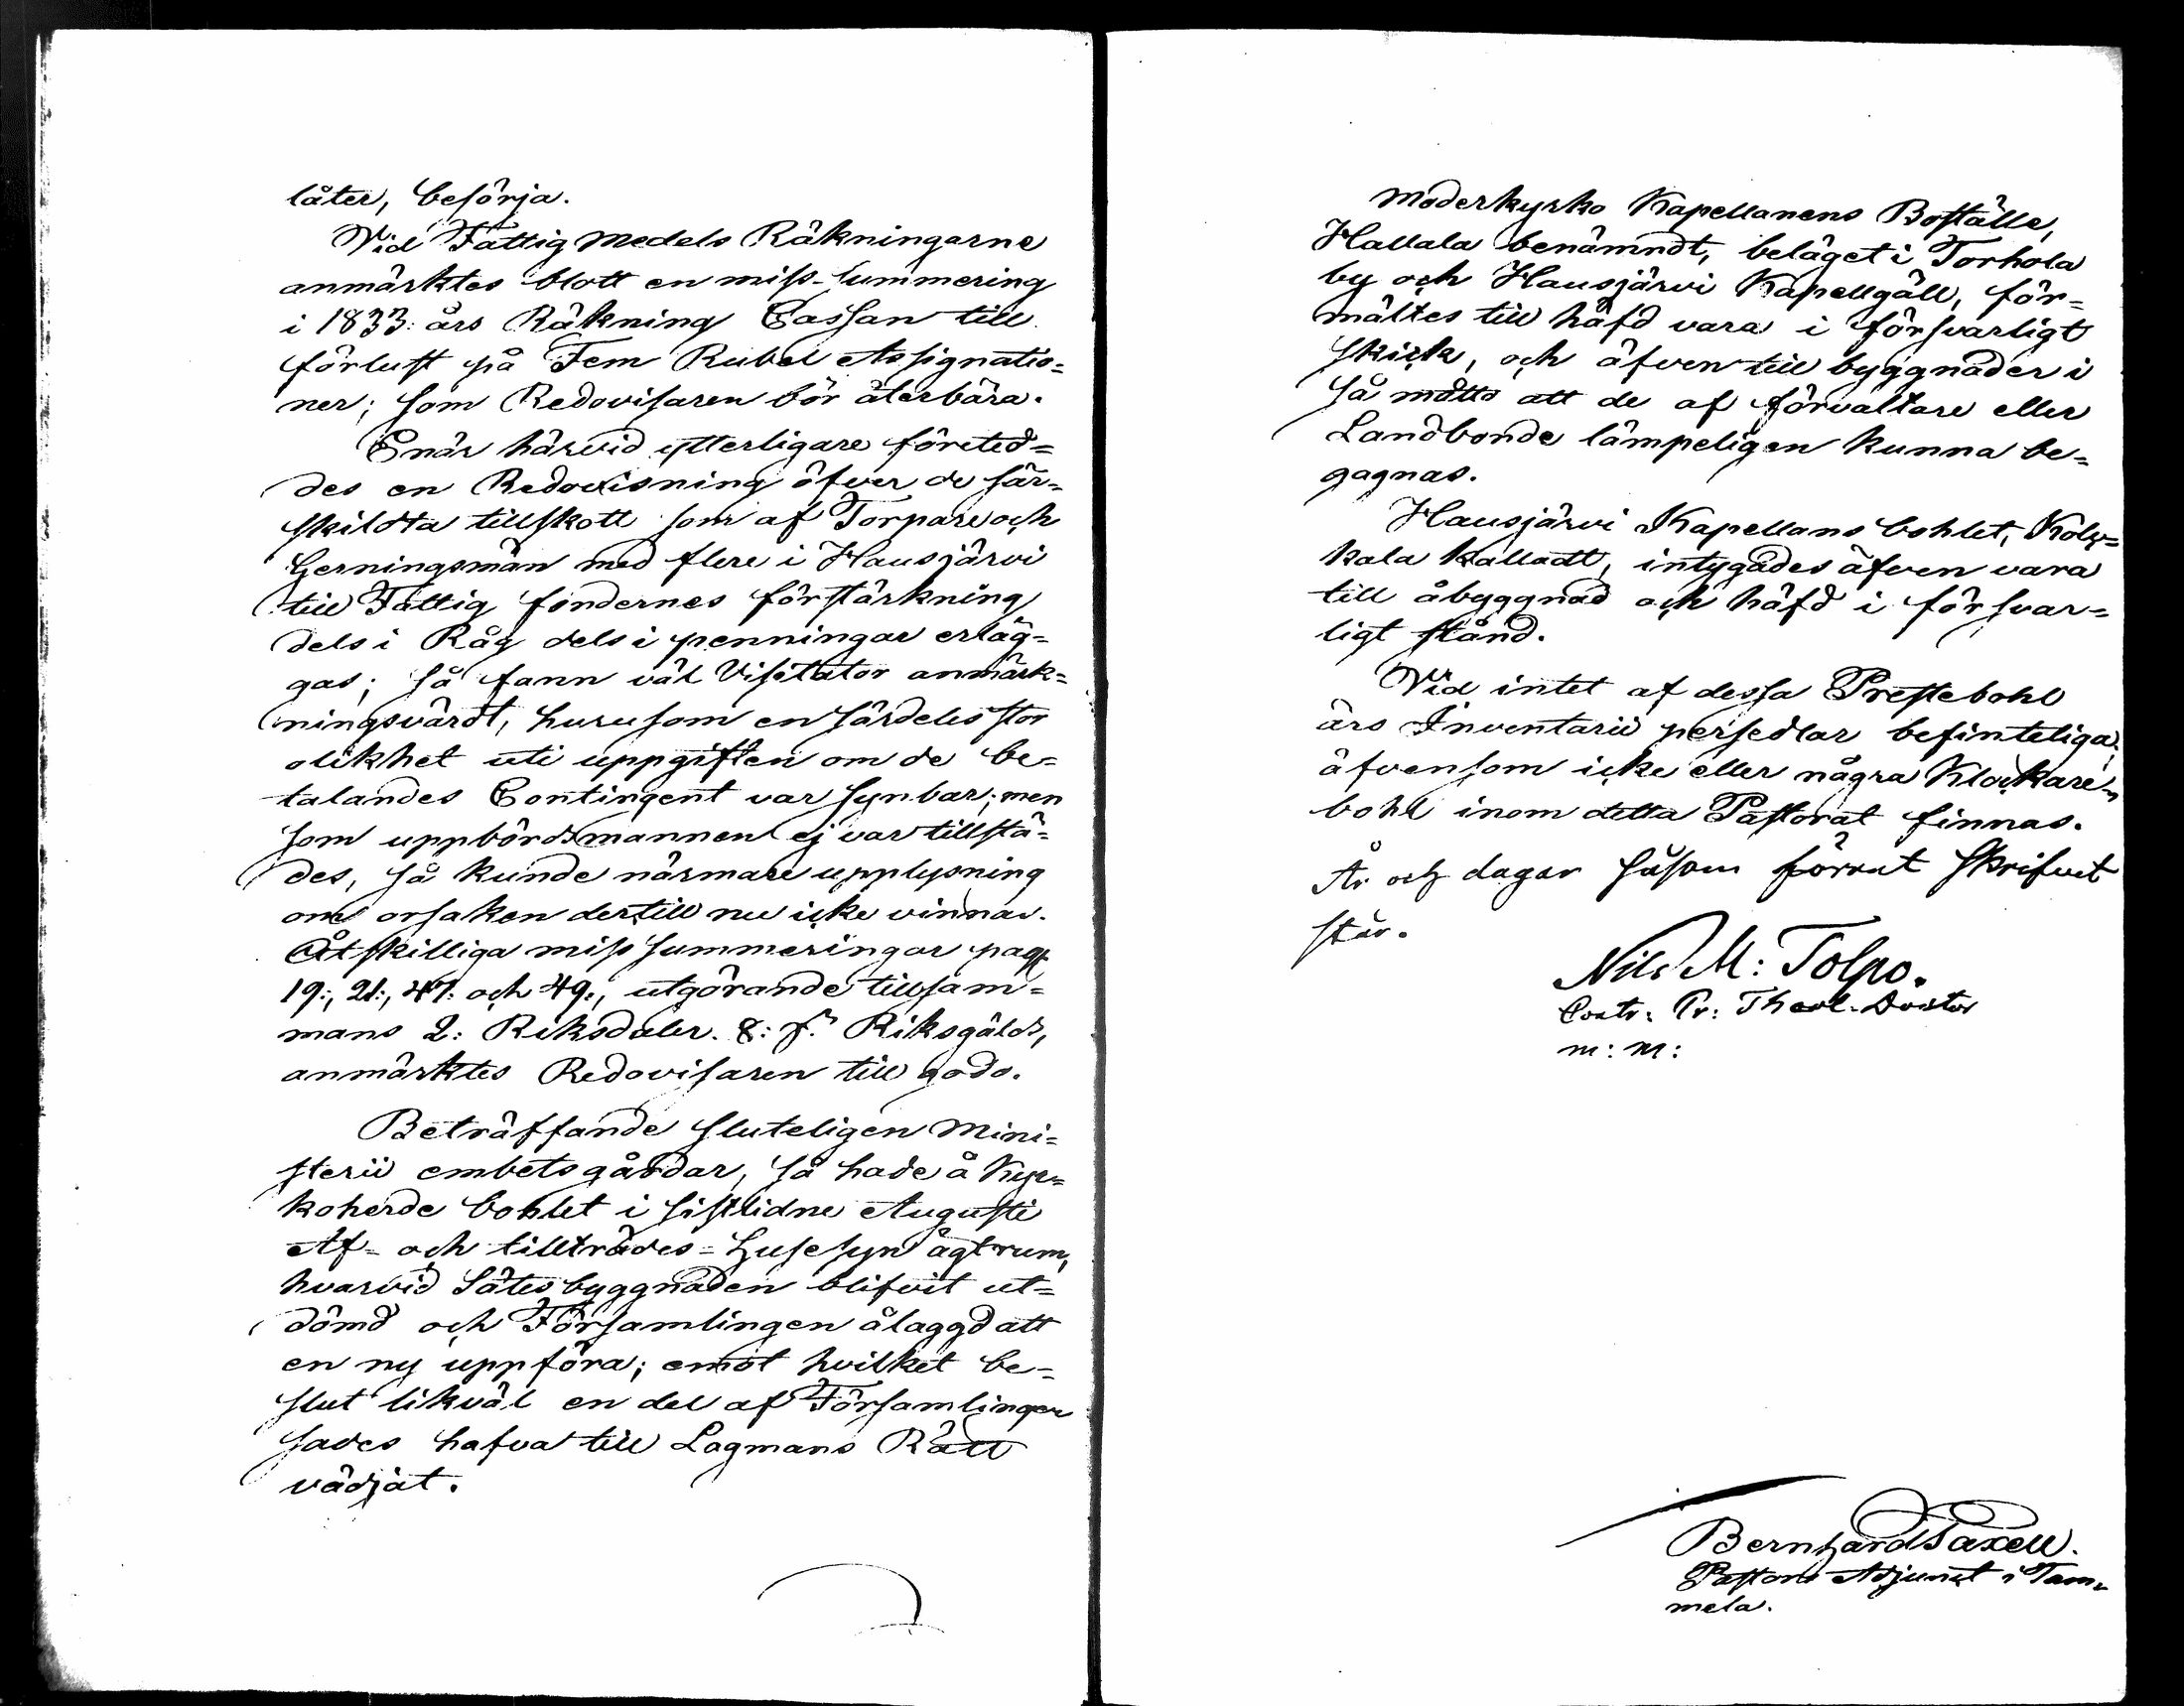 låter, besörja.
Vid Fattig Medels Räkningarne
anmärktes blott en miss-summering
i 1833: års Räkning Cassan till
förlust på Fem Rubel Assignatio=
ner; som Redovisaren bör återbära.
Enär härvid ytterligare företed=
des en Redovisning öfver de sär=
skildta tillskott som af Torpare och
Gerningsmän med flere i Hausjärvi
till Fattig fondernes förstärkning
dels i Råg dels i penningar erläg=
gas; så fann väl Visitator anmärk=
ningsvärdt, hurusom en särdeles stor
olikhet uti uppgiften om de be=
talandes Contingent var synbar; men
som uppbördsmannen ej var tillstä=
des, så kunde närmare upplysning
om orsaken dertill nu icke vinnas.
Åtskilliga miss summeringar pag.
19:, 21:, 47: och 49:, utgörande tillsam=
mans 2: Riksdaler. 8: Riksgälds,
anmärktes Redovisaren till godo.
Beträffande sluteligen Mini=
sterii embetsgårdar, så hade å Kyr=
koherde bohlet i sistlidne Augusti
Af= och tillträdes=Husesyn ägt rum,
hvarvid Sätesbyggnaden blifvit ut=
dömd och Församlingen ålaggd att
en ny uppföra; emot hvilket be=
slut likväl en del af Församlingen
sades hafva till Lagmans Rätt
vädjat.
Moderkyrko Kapellanens Boställe,
Hallala benämndt, beläget i Torhola
by och Hausjärvi Kapellgäll, för=
mältes till häfd vara i försvarligt
skick, och äfven till byggnader i
så motto att de af förvaltare eller
Landbonde lämpeligen kunna be=
gagnas.
Hausjärvi Kapellans bohlet,
kala kalladt, intygades äfven vara
till åbyggnad och häfd i försvar=
ligt stånd.
Vid intet af dessa Prestebohl
äro Inventarii persedlar befinteliga;
äfvensom icke eller några Klockare=
bohl inom detta Pastorat finnas.
År och dagar såsom förrut skrifvet
står.
Nils M: Tolpo.
Contr: Pr: Theol. Doctor
m: m:
Bernhard Taxell.
Pastors Adjunct i Tam=
mela.